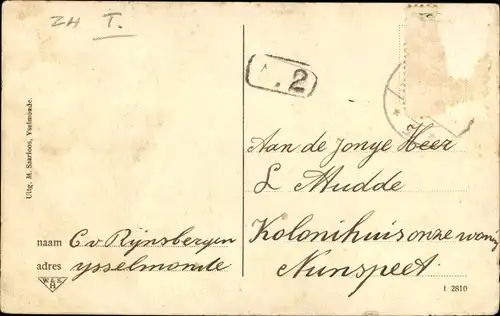 ZH I.
.2
Aan de Jonge Heer
L Mudde
Kolonihuis onze woning
Nunspeet
Uitg. M. Saarloos, Yselmonde.
naam C v Rijnsbergen
adres ysselmonde
W & S
H
t 2810